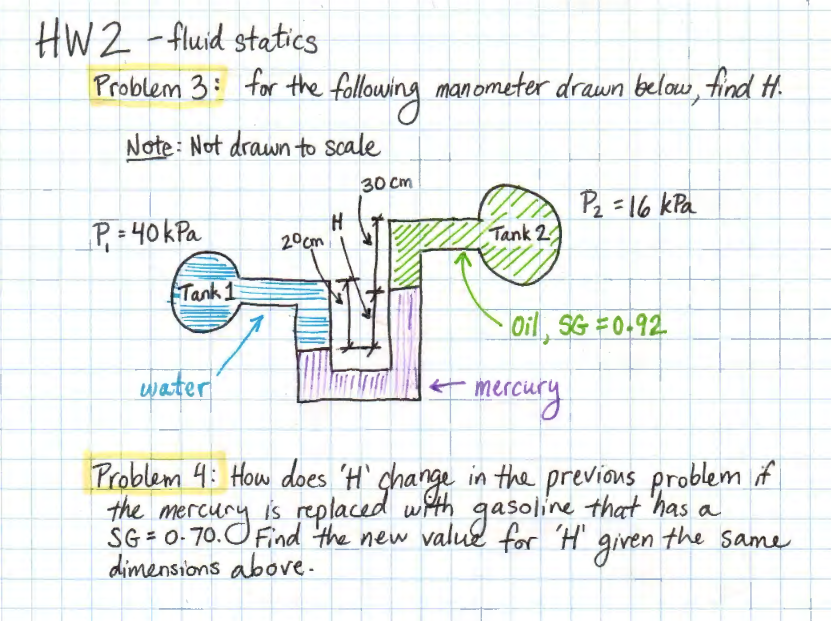 HW2 - fluid statics
Problem 3: for the following manometer drawn below, find H.
Note: Not drawn to scale
30 cm
P₂ = 16 kPa
P₁ = 40 kPa
20cm
H
Tank 2
Tank 1
Oil, SG = 0.92
water
mercury
Problem 4: How does 'H' change in the previous problem if
the mercury is replaced with gasoline that has a
SG = 0.70. Find the new value for 'H' given the same
dimensions above.